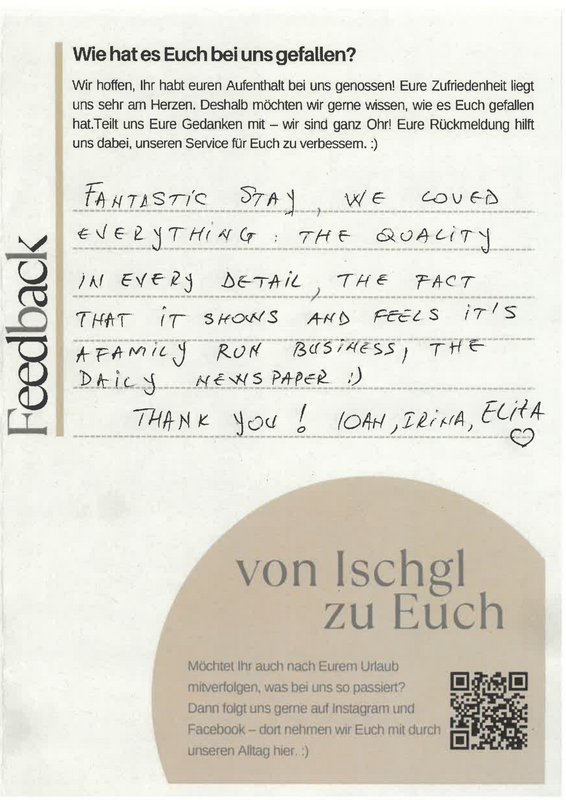 Wie hat es Euch bei uns gefallen?
Wir hoffen, Ihr habt euren Aufenthalt bei uns genossen! Eure Zufriedenheit liegt
uns sehr am Herzen. Deshalb möchten wir gerne wissen, wie es Euch gefallen
hat.Teilt uns Eure Gedanken mit – wir sind ganz Ohr! Eure Rückmeldung hilft
uns dabei, unseren Service für Euch zu verbessern. :)
Feedback
FANTASTIC STAY, WE LOVED
EVERYTHING: THE QUALITY
IN EVERY DETAIL, THE FACT
THAT IT SHOWS AND FEELS IT'S
A FAMILY RUN BUSINESS, THE
DAILY NEWSPAPER :)
THANK YOU! IOAN, IRINA, ELIZA
von Ischgl
zu Euch
Möchtet Ihr auch nach Eurem Urlaub
mitverfolgen, was bei uns so passiert?
Dann folgt uns gerne auf Instagram und
Facebook – dort nehmen wir Euch mit durch
unseren Alltag hier. :)